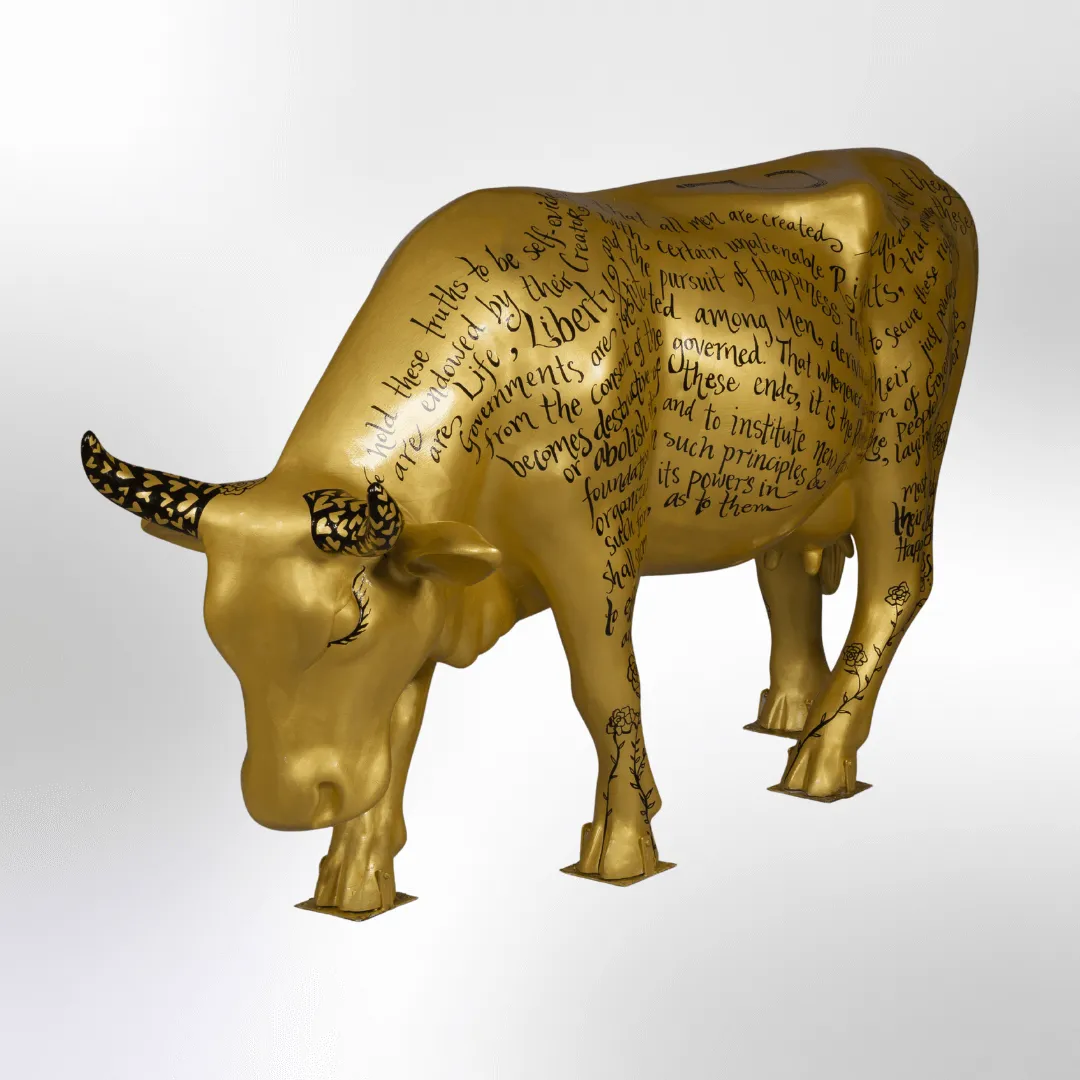 hold these truths to be self-evid all men are created equal, that they
are endowed by their Creator with certain unalienable Rights, that among these
are Life, Liberty and the pursuit of Happiness. Th to secure these rig
Governments are instituted among Men, deriv heir just powers
from the consent of the governed. That whenever rm of Gover
becomes destructive of these ends, it is the People
or abolish and to institute new layin
foundati such principles &
organizi its powers in most
such as to them their
shall Happ
to